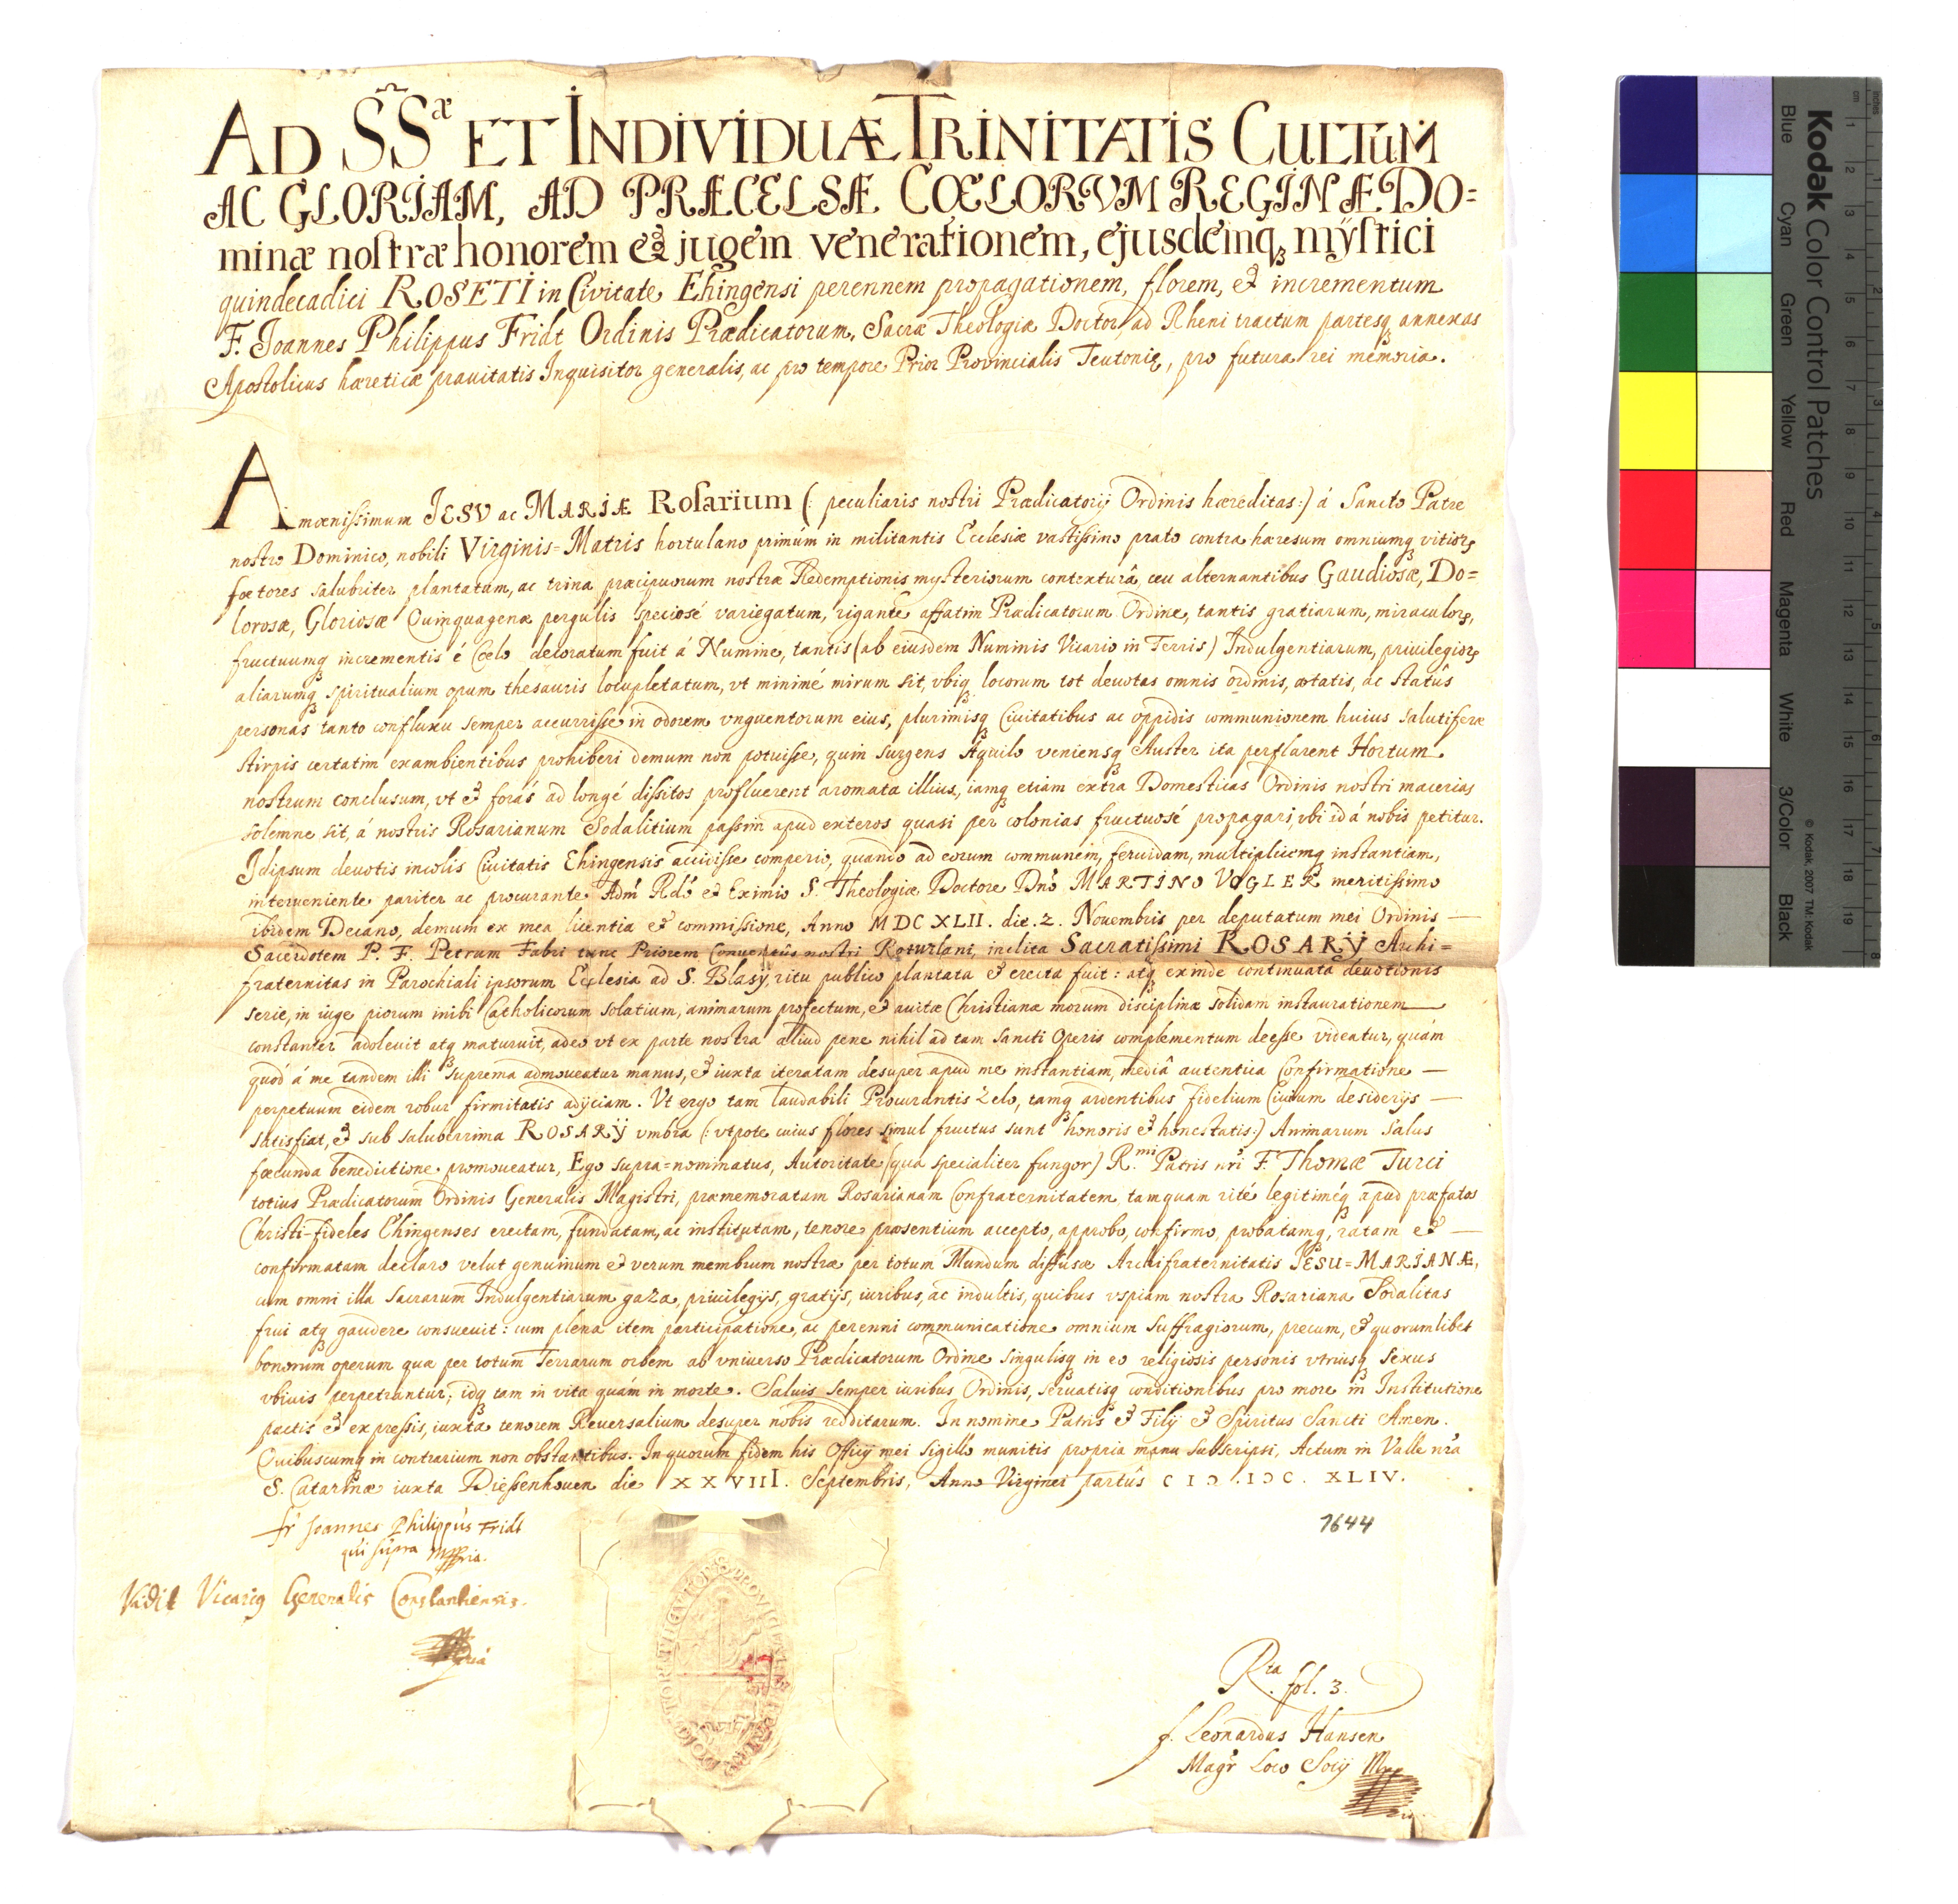 AD S̃S.æ ET INDIVIDUÆ TRINITATIS CULTUM
AC GLORIAM, AD PRÆCELSÆ CŒLORVM REGINÆ DO=
minæ nostræ honorem et jugem venerationem, ejusdemq₃ mÿstici
quindecadici ROSETI in Civitate Ehingensi perennem propagationem, florem, et incrementum
F. Joannes Philippus Fridt Ordinis Prædicatorum, Sacræ Theologiæ Doctor, ad Rheni tractum partesq₃ annexas
Apostolicus hæreticæ prauitatis Inquisitor generalis, ac pro tempore Prior Provincialis Teutonię, pro futura rei memoria.
Amœnissimum JESV ac MARIÆ Rosarium (: peculiaris nostri Prædicatorij Ordinis hæreditas:) á Sancto Patre
nostro Dominico, nobili Virginis=Matris hortulano primúm in militantis Ecclesiæ vastissimo prato contra hæresum omniumq₃ vitioꝝ
fœtores salubriter plantatum, ac trina præcipuorum nostræ Redemptionis mysteriorum contexturâ, ceu alternantibus Gaudiosæ, Do=
lorosæ, Gloriosæ Quinquagenæ pergulis speciosé variegatum, rigante affatim Prædicatorum Ordine, tantis gratiarum, miraculoꝝ,
fructuumq₃ incrementis é Cœlo decoratum fuit á Numine, tantis (ab eiusdem Numinis Vicario in Terris) Indulgentiarum, priuilegioꝝ
aliarumq₃ spiritualium opum thesauris locupletatum, vt minimé mirum sit, vbiq₃ locorum tot deuotas omnis ordinis, ætatis, ac statûs
personas tanto confluxu semper accurrisse in odorem vnguentorum eius, plurimisq₃ Ciuitatibus ac oppidis communionem huius salutiferæ
stirpis certatim exambientibus prohiberi demum non potuisse, quin surgens Aquilo veniensq₃ Auster ita perflarent Hortum
nostrum conclusum, vt et forás ad longé dissitos profluerent aromata illius, iamq₃ etiam extra Domesticas Ordinis nostri macerias
solemne sit, á nostris Rosarianum Sodalitium passim apud exteros quasi per colonias fructuosé propagari, vbi id á nobis petitur.
Idipsum deuotis incolis Ciuitatis Ehingensis accidisse comperio, quando ad eorum communem, feruidam, multiplicemq₃ instantiam,
interueniente pariter ac procurante Adm̃ Rdó et Eximio S. Theologiæ Doctore Dnó MARTINO VOGLER meritissimo
ibidem Decano, demum ex mea licentia et commissione, Anno MDCXLII. die. 2. Nouembris per deputatum mei Ordinis —
Sacerdotem P. F. Petrum Fabri tunc Priorem Conuentûs nostri Rotwilani, inclita Sacratissimi ROSARŸ Archi=
fraternitas in Parochiali ipsorum Ecclesia ad S. Blasÿ, ritu publico plantata et erecta fuit: atq₃ exinde continuata deuotionis
serie, in iuge piorum inibi Catholicorum solatium, animarum profectum, et auitæ Christianæ morum disciplinæ solidam instaurationem
constanter adoleuit atq₃ maturuit, adeo vt ex parte nostra aliud pene nihil ad tam sancti Operis complementum deesse videatur, quám
quod á me tandem illi suprema admoueatur manus, et iuxta iteratam desuper apud me instantiam, mediâ autentica Confirmatione —
perpetuum eidem robur firmitatis adÿciam. Vt ergo tam laudabili Procurantis Zelo, tamq₃ ardentibus fidelium Ciuium desiderÿs —
satisfiat, et sub saluberrima ROSARŸ vmbra (: vtpote cuius flores simul fructus sunt honoris et honestatis:) Animarum Salus
fœcunda benedictione promoueatur, Ego supra=nominatus, Autoritate (qua specialiter fungor) R.mi Patris nr̃i F. Thomæ Turci
totius Prædicatorum Ordinis Generalis Magistri, præmemoratam Rosarianam Confraternitatem tamquam rité legitiméq₃ apud præfatos
Christi-fideles Ehingenses erectam, fundatam, ac institutam, tenore præsentium accepto, approbo, confirmo, probatamq₃, ratam et —
confirmatam declaro velut genuinum et verum membrum nostræ per totum Mundum diffusæ Archifraternitatis JESU=MARIANÆ,
cum omni illa sacrarum Indulgentiarum gaza, priuilegÿs, gratÿs, iuribus, ac indultis, quibus vspiam nostra Rosariana Sodalitas
frui atq₃ gaudere consueuit: cum plena item participatione, ac perenni communicatione omnium suffragiorum, precum, et quorumlibet
bonorum operum quæ per totum Terrarum orbem ab vniuerso Prædicatorum Ordine singulisq₃ in eo religiosis personis vtriusq₃ sexus
vbiuis perpetrantur; idq₃ tam in vita quám in morte. Saluis semper iuribus Ordinis, seruatisq₃ conditionibus pro more in Institutione
pactis et expressis, iuxta tenorem Reuersalium desuper nobis redditarum. In nomine Patris et Filÿ et Spiritus Sancti Amen.
Quibuscumq₃ in contrarium non obstantibus. In quorum fidem his Officÿ mei sigillo munitis propria manu subscripsi, Actum in Valle nr̃a
S. Catarinæ iuxta Diessenhouen die XXVIII. Septembris, Anno Virginei partûs CIƆ.IƆC.XLIV.
fr Joannes Philippus Fridt
qui supra mppria.
1644
Vidit Vicarius Generalis Constantiensis.
R.ta fol. 3.
f. Leonardus Hansen
Magr̃ Loco Socÿ Mpp
Kodak Color Control Patches
© Kodak, 2007 TM: Kodak
Blue Cyan Green Yellow Red Magenta White 3/Color Black
inches
cm
1 2 3 4 5 6 7 8 9 10 11 12 13 14 15 16 17 18 19
1 2 3 4 5 6 7 8